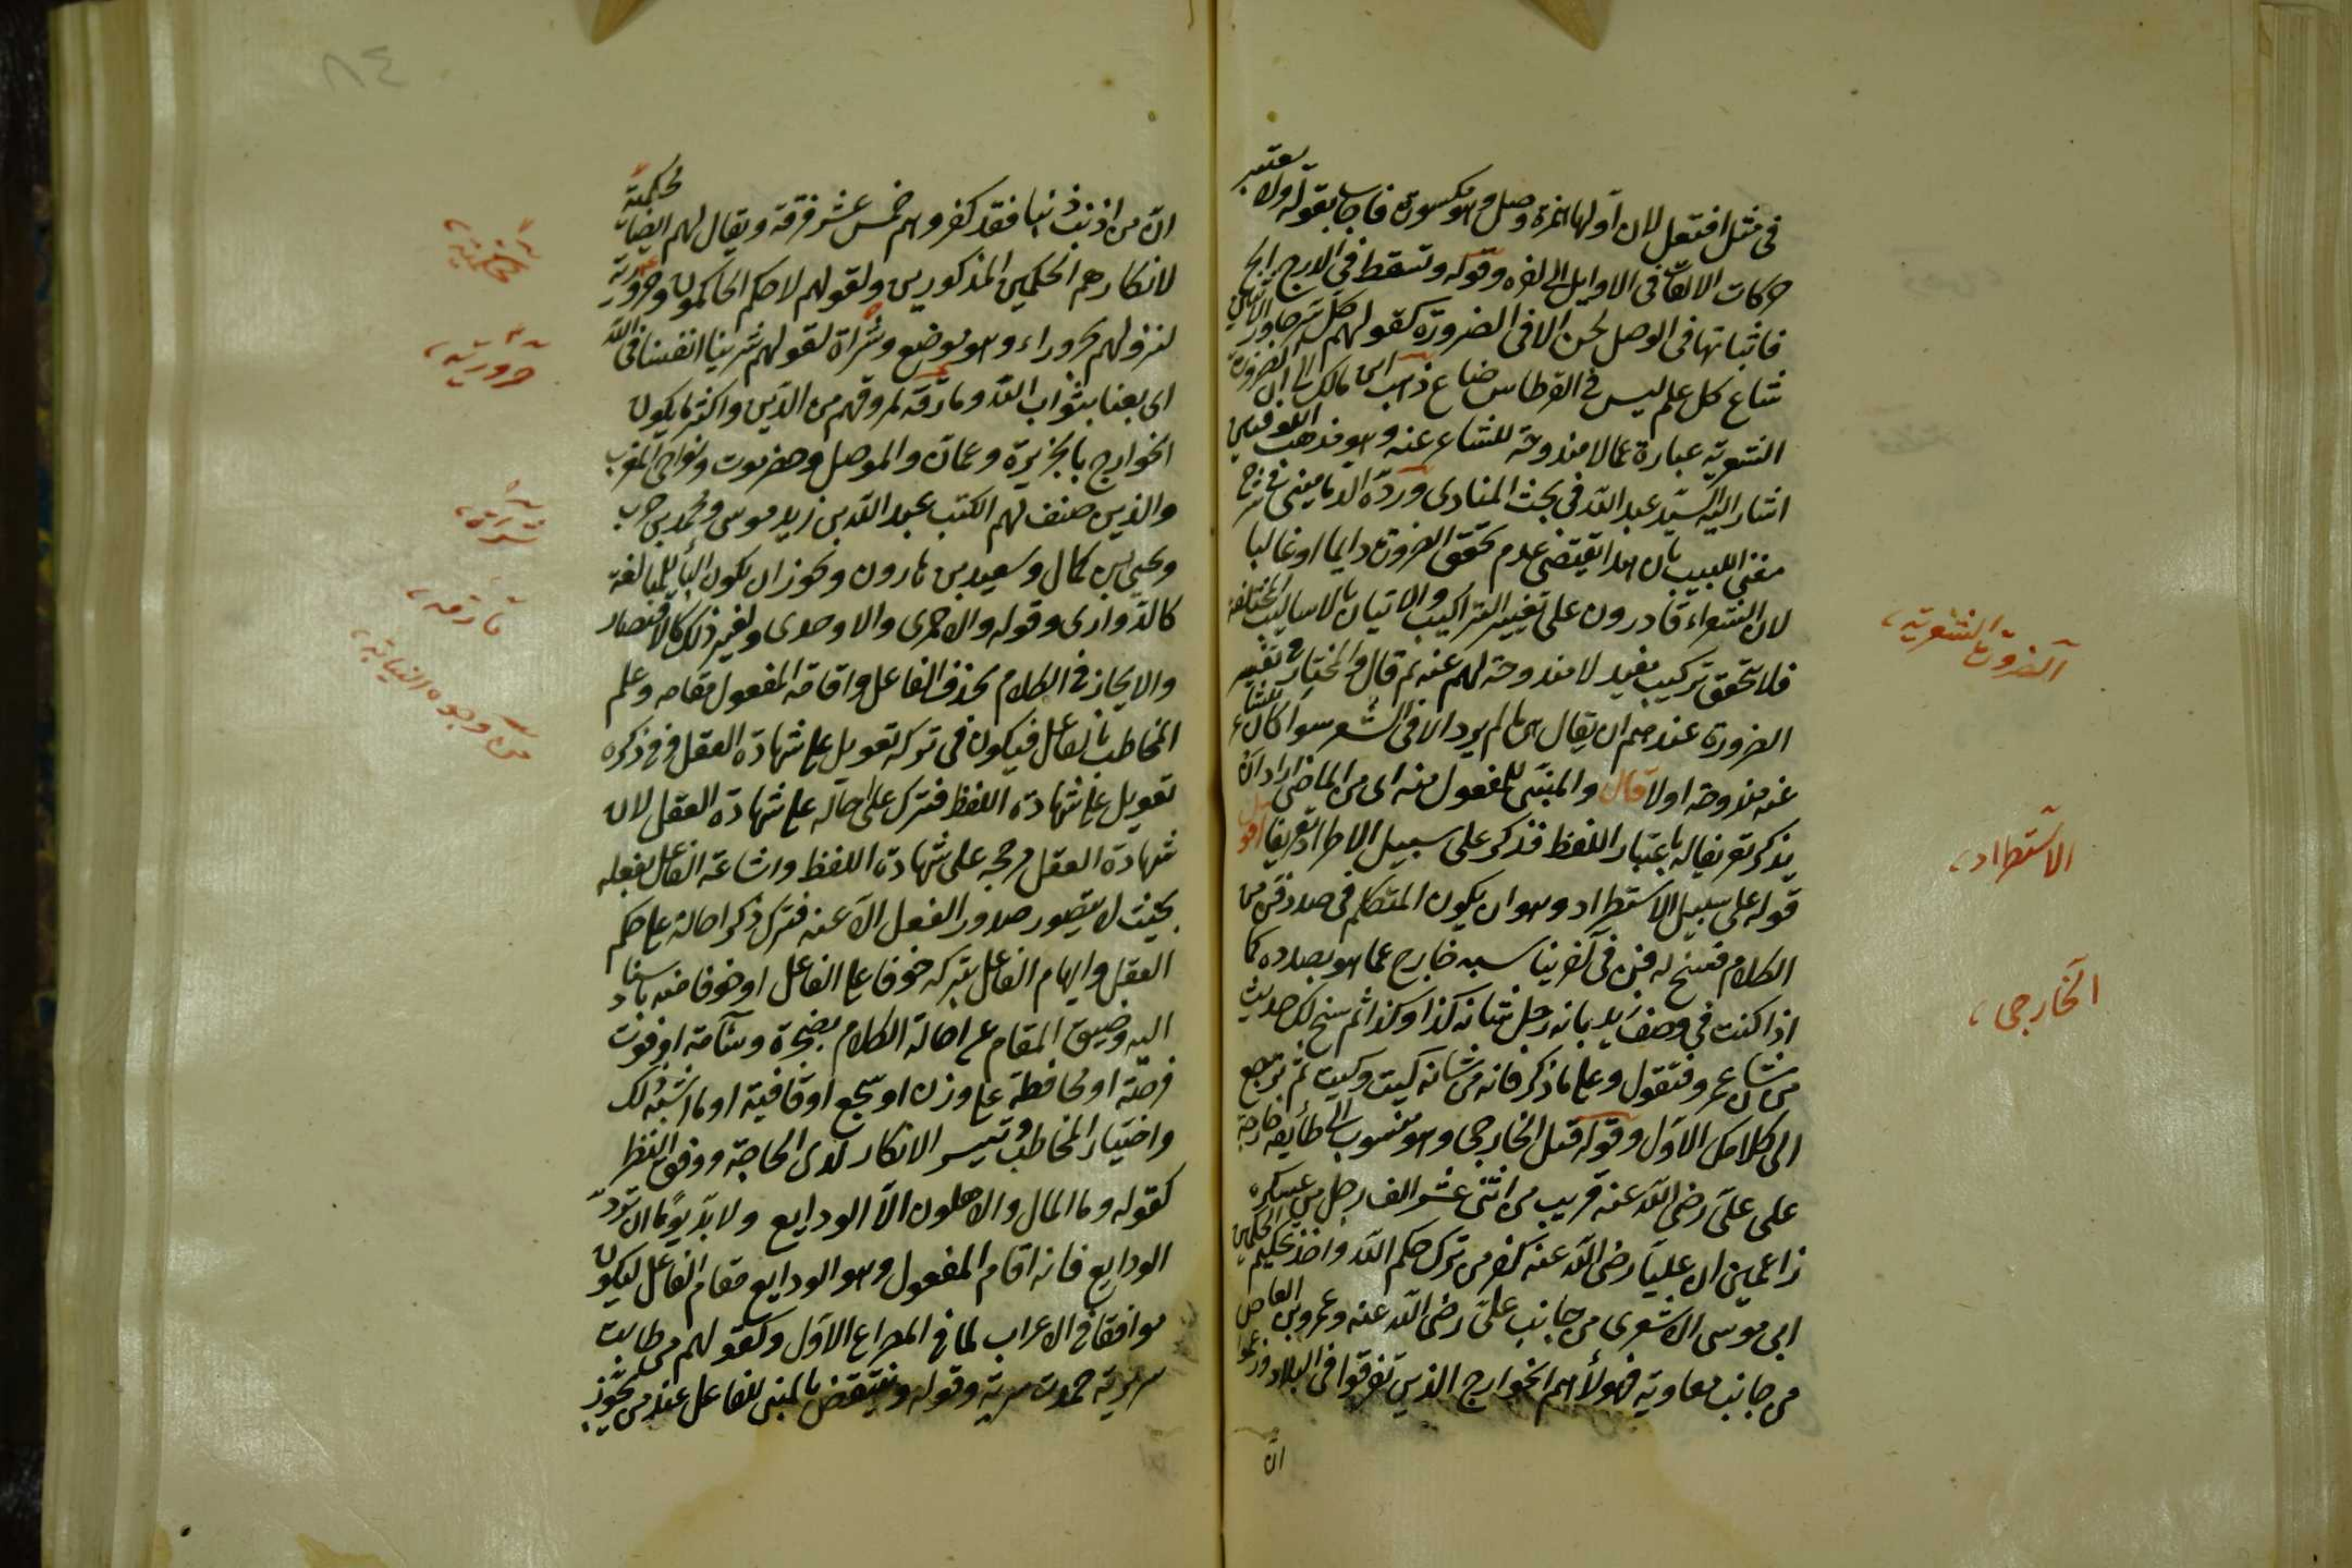 في مثل افتعل لان اولها همزة وصل وهو مكسورة فاجاب بقوله ولا يعتبر
حركات الالفات في الاوايل الى اخره وقوله وتسقط في الدرج الخ
فاثباتها في الوصل لحن الا في الضرورة كقولهم كل سر جاوز الاثنين
شاع كل علم ليس في القرطاس ضاع ذهب ابن مالك الى ان الضرورة
الشعرية عبارة عما لا مندوحة للشاعر عنه وهو مذهب
اشار اليه السيد عبد الله في بحث المنادى ورده الدماميني في شرح
مغني اللبيب بان هذا يقتضي عدم تحقق الضرورة دايما او غالبا
لان الشعراء قادرون على تغيير التراكيب والاتيان بالاساليب المختلفة
فلا تحقق تركيب مفيد لا مندوحة لهم عنه ثم قال والمختار في تفسير
الضرورة عندهم ان يقال هي ما لم يرد الا في الشعر سواء كان للشاعر
عنه مندوحة اولا قال والمبني للمفعول منه اي من الماضي اراد ان
يذكر تعريفا له باعتبار اللفظ فذكر على سبيل الاستطراد تعريفا اقول
قوله على سبيل الاستطراد وهو ان يكون المتكلم في صدد فن من
الكلام فسنح له فن في اخر يناسبه خارج عما هو بصدده كما
اذا كنت في وصف زيد بانه رجل شانه كذا وكذا ثم سنح لك حديث
من شان عمرو فتقول وعلى ما ذكر فانه من شانه كيت وكيت ثم ترجع
الى كلامك الاول وقوله قتل الخارجي وهو منسوب الى طائفة خارجة
على علي رضي الله عنه قريب من اثني عشر الف رجل من عسكره
زاعمين ان عليا رضي الله عنه كفر من ترك حكم الله واخذ تحكيم الحكمين
ابي موسى الاشعري من جانب علي رضي الله عنه وعمرو بن العاص
من جانب معاوية فهؤلاء هم الخوارج الذين تفرقوا في البلاد وزعموا
ان
الضرورة الشعرية
الاستطراد
الخارجي
ان من اذنب ذنبا فقد كفر وهم خمس عشر فرقة ويقال لهم ايضا محكمية
لانكارهم الحكمين المذكورين ولقولهم لا حكم الحاكمون وحرورية
لنزولهم بحروراء وهو موضع وشراة لقولهم شرينا انفسنا في الله
اي بعنا بثواب الله ومارقة لمروقهم من الدين واكثر ما يكون
الخوارج بالجزيرة وعمان والموصل وحضرموت ونواحي المغرب
والذين صنف لهم الكتب عبد الله بن زيد موسى ومحمد بن حرب
ويحيى بن كمال وسعيد بن هارون ويجوز ان يكون الياء للمبالغة
كالدواري وقوله والاحمري والاوحدي ولغير ذلك كالاختصار
والايجاز في الكلام بحذف الفاعل واقامة المفعول مقامه وعلم
المخاطب بالفاعل فيكون في تركه تعويل على شهادة العقل وفي ذكره
تعويل على شهادة اللفظ فترك على احاله على شهادة العقل لان
شهادة العقل مرجحه على شهادة اللفظ واشاعة الفاعل بفعله
بحيث لا يتصور صدور الفعل الا عنه فترك ذكر احالة على حكم
العقل وايهام الفاعل بتركه خوفا على الفاعل او خوفا منه باسناد
اليه وضيق المقام عن اطالة الكلام بضجرة وسآمة او فوت
فرصة او محافظة على وزن او سجع او قافية او ما اشبه ذلك
واختيار المخاطب وتيسر الانكار لدى الحاجة ووفق النظر
كقوله وما المال والاهلون الا الودايع ولا بد يوما ان ترد
الودايع فانه اقام المفعول وهو الودايع مقام الفاعل ليكون
موافقا في الاعراب لما في المصراع الاول وكقولهم من طابت
سريرته حمدت سيرته وقوله وينتقض بالمبني للفاعل عند من يجوز
محكمية
حرورية
شراة
مارقة
من وجوه النيابة